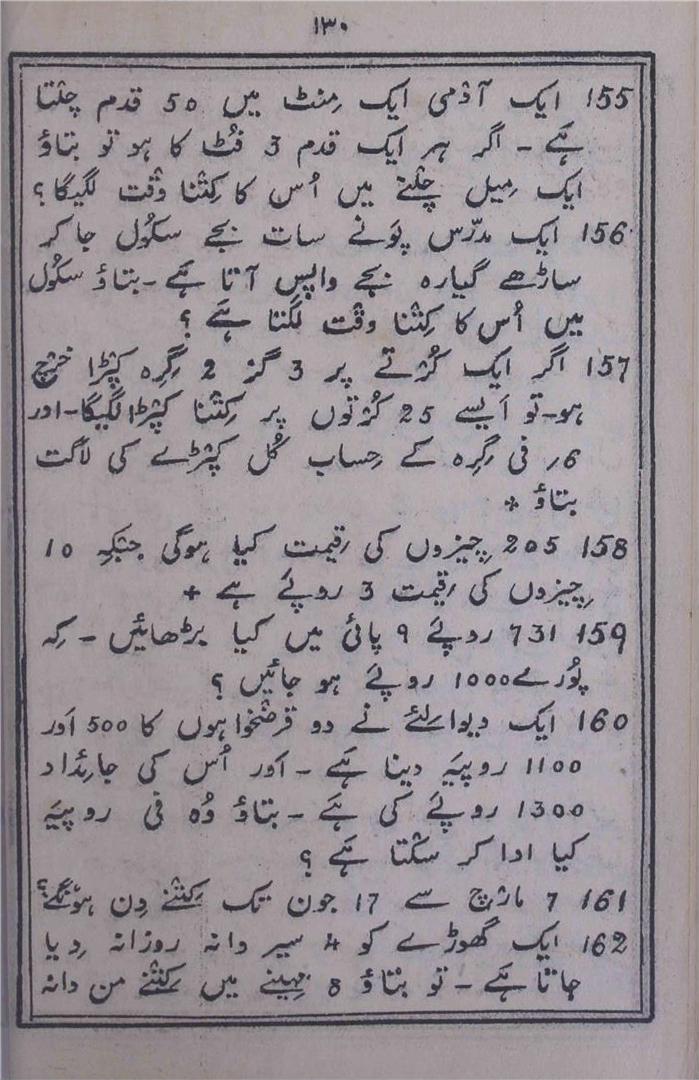 ۱۳۰
155 ایک آدْمی ایک مِنٹ میں 50 قدم چلْتا
ہَے - اگر ہر ایک قدم 3 فُٹ کا ہو تو بتاؤ
ایک مِیل چلْنے میں اُس کا کِتْنا وقْت لگیگا؟
156 ایک مدرّس پَونے سات بجے سکُول جا کر
ساڑھے گیارہ بجے واپس آتا ہَے - بتاؤ سکُول
میں اُس کا کِتْنا وقْت لگتا ہَے ؟
157 اگر ایک کُرْتے پر 3 گز 2 گِرہ کپْڑا خرْچ
ہو- تو اَیسے 25 کُرْتوں پر کِتْنا کپْڑا لگیگا- اور
6؍ فی گِرہ کے حِساب کُل کپْڑے کی لاگت
بتاؤ +
158 205 چِیزوں کی قِیمت کیا ہوگی جبْکِہ 10
چِیزوں کی قِیمت 3 روپَے ہے +
159 731 روپَے 9 پائی میں کیا بڑھائیں - کِہ
پُورے 1000 روپَے ہو جائیں ؟
160 ایک دیوالِئے نے دو قرضْخواہوں کا 500 اَور
1100 روپیَہ دینا ہَے - اَور اُس کی جائِداد
1300 روپَے کی ہَے - بتاؤ وُہ فی روپیَہ
کیا ادا کر سکْتا ہَے ؟
161 7 مارْچ سے 17 جون تک کِتْنے دِن ہونْگے؟
162 ایک گھوڑے کو 4 سیر دانہ روزانہ دِیا
جاتا ہَے - تو بتاؤ 8 مہِینے میں کِتْنے من دانہ